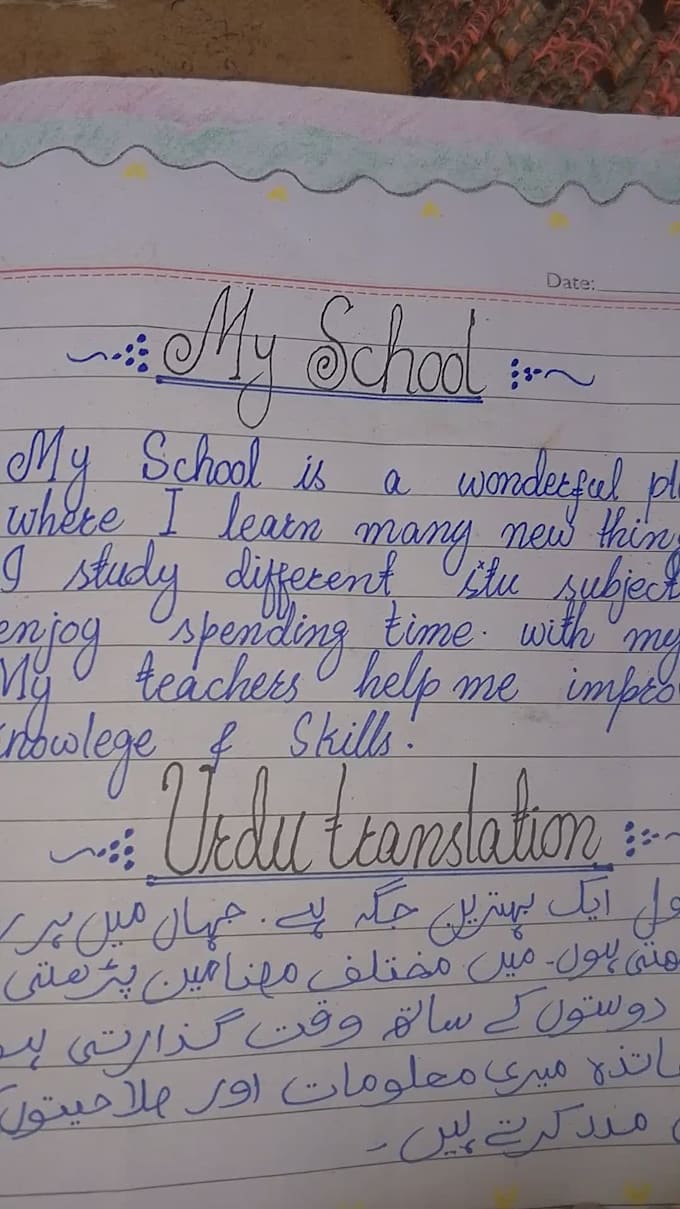 Date:
My School
My School is a wonderful
where I learn many new
I study different itu
enjoy spending time. with my
My teachers help me
knowlege & Skills.
Urdu translation
ایک بہترین جگہ ہے۔ جہاں میں ہر
ہوں۔ میں مختلف مضامین پڑھتی
دوستوں کے ساتھ وقت گذارتی
میری معلومات اور صلاحیتوں
مدد کرتے ہیں۔